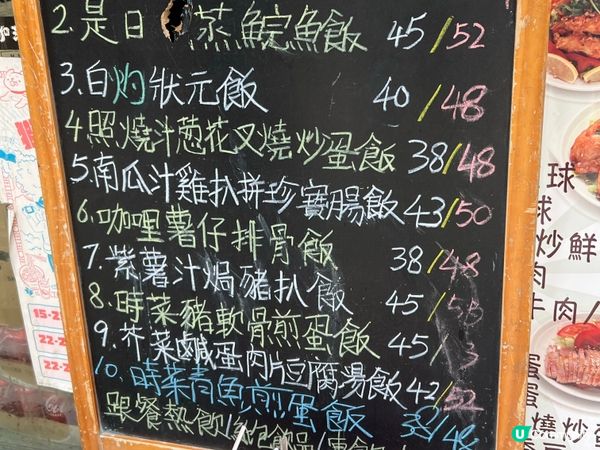 2.是日 蒸鯇魚飯 45/52
3.白灼狀元飯 40/48
4.照燒汁葱花叉燒炒蛋飯 38/48
5.南瓜汁雞扒拼珍寶腸飯 43/50
6.咖哩薯仔排骨飯 38/48
7.紫薯汁焗豬扒飯 45/
8.時菜豬軟骨煎蛋飯 45/
9.芥菜鹹蛋肉片豆腐湯飯 42/52
10.時菜青魚煎蛋飯 38/48
跟餐熱飲/
球
球
炒鮮
肉
牛肉/
蛋
燒炒
15-2
22-2
22-2
U